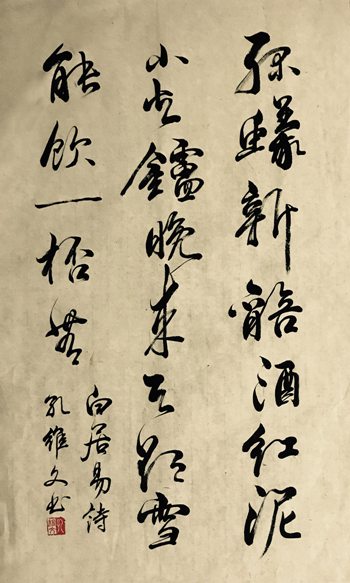 綠蟻新醅酒紅泥
小火鑪晚來天欲雪
能飲一桮無
白居易詩
孔維文书